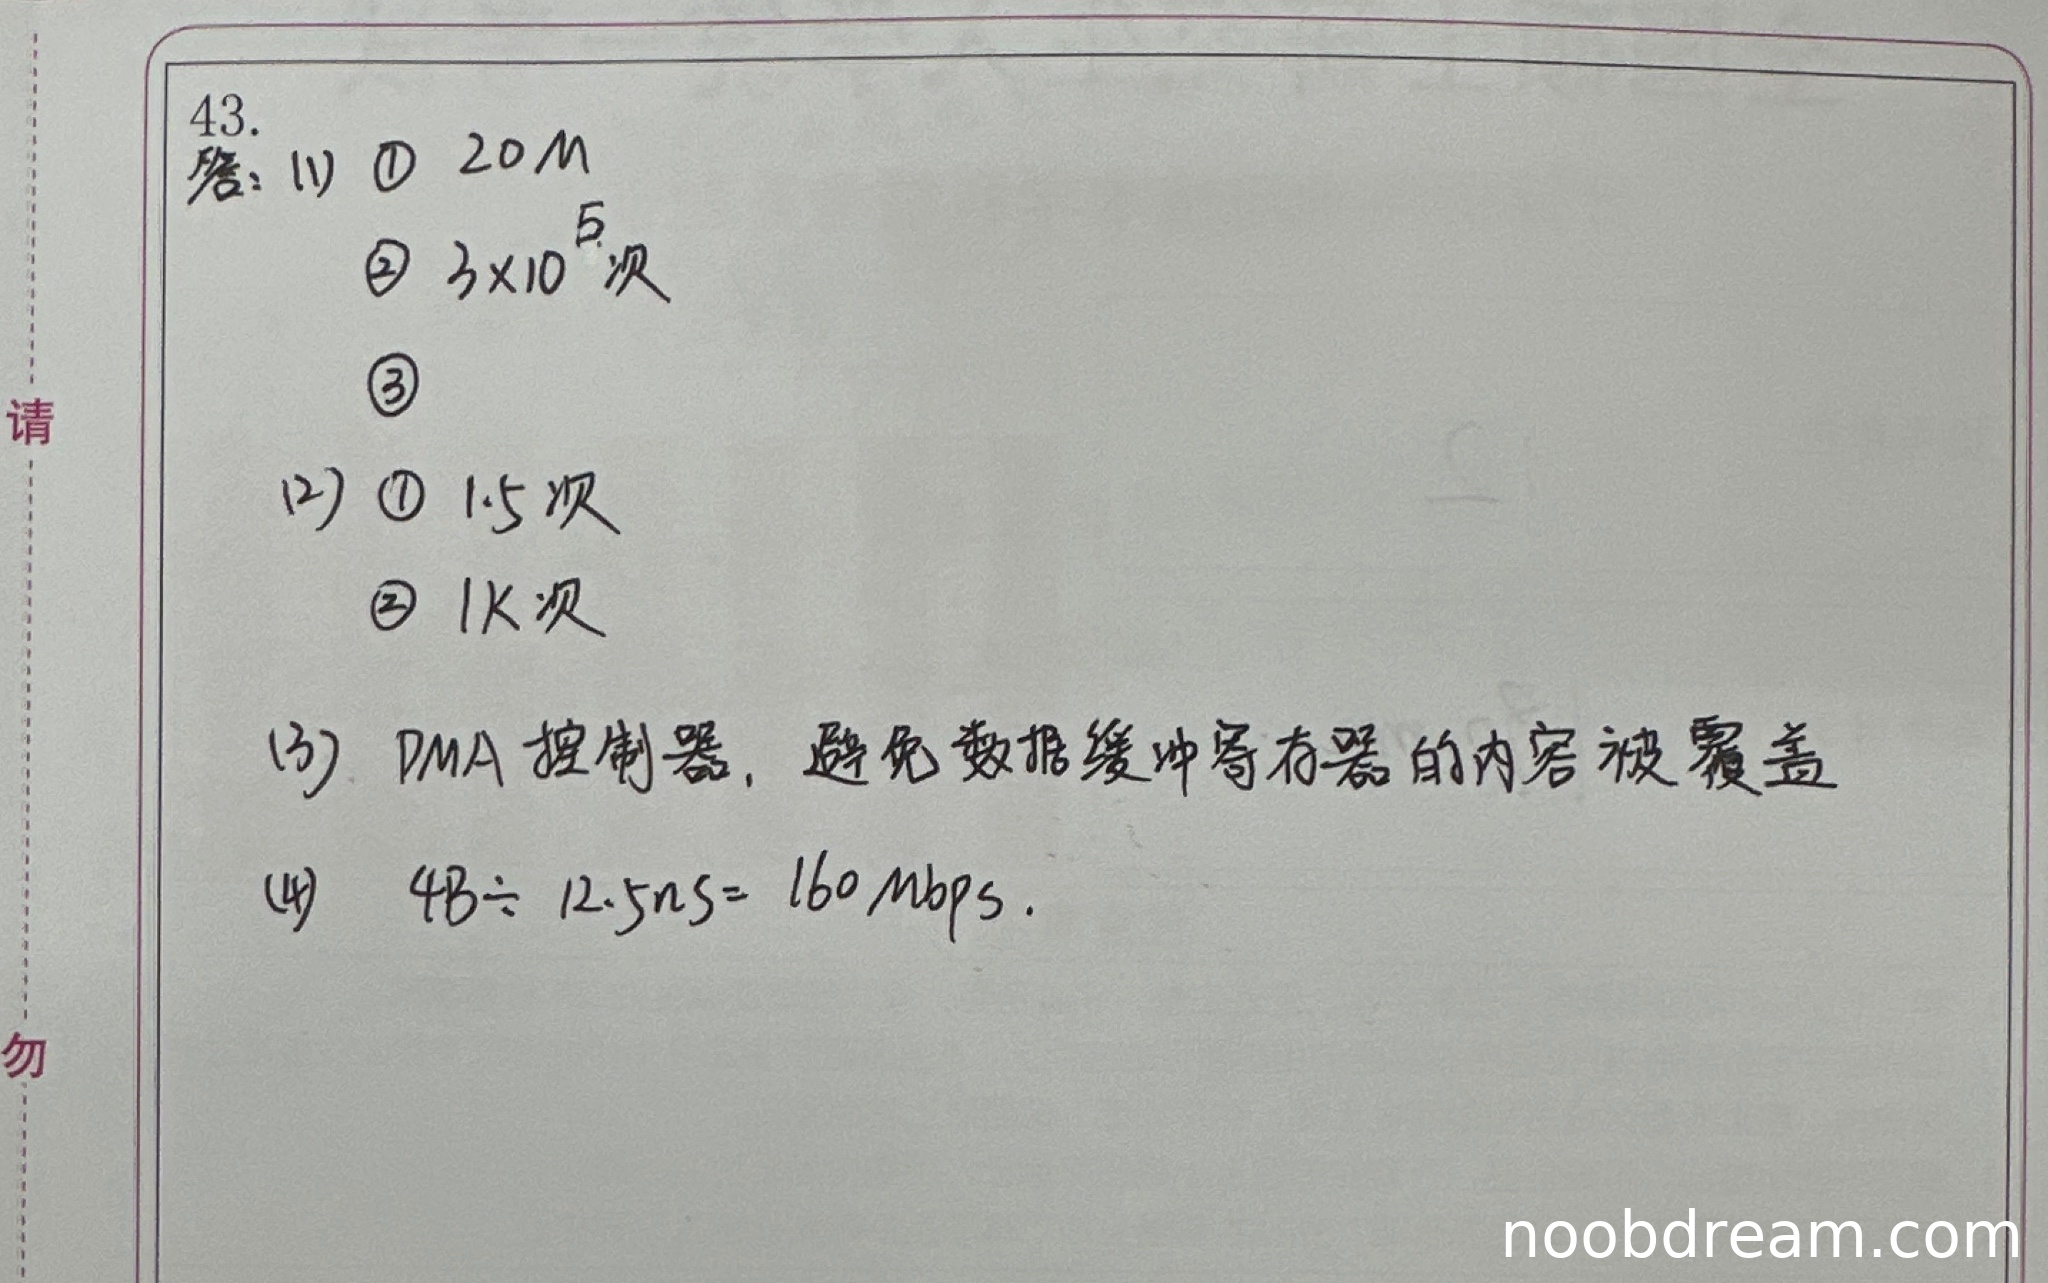 43.
答：(1) ① 20M
② 3×10^5次
③
(2) ① 1.5次
② 1K次
(3) DMA控制器，避免数据缓冲寄存器的内容被覆盖
(4) 4B÷12.5ns=160Mbps.
请
勿
noobdream.com